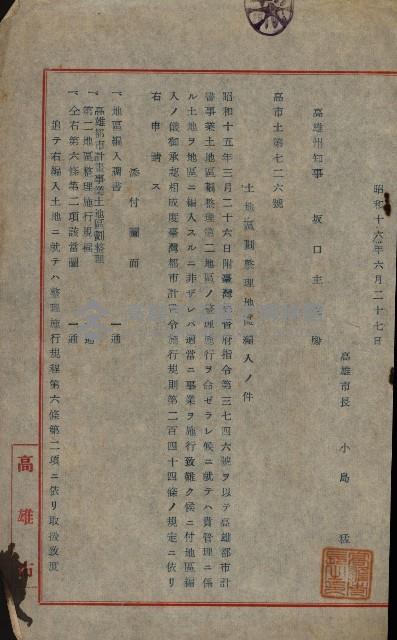 昭和十六年六月二十七日
高雄市長 小島 猛
高雄州知事 坂口主税 殿
高市土第七二六號
土地區劃整理地區編入ノ件
昭和十五年三月二十六日附臺灣總督府指令第三七四六號ヲ以テ高雄都市計
畫事業土地區劃整理第二地區ノ整理施行ヲ命ゼラレ候ニ就テハ貴管理ニ係
ル土地ヲ地區ニ編入スルニ非ザレバ適當ニ事業ヲ施行致難ク候ニ付地區編
入ノ儀御承認相成度臺灣都市計畫令施行規則第二百四十四條ノ規定ニ依リ
右申請ス
添付圖面
一、地區編入調書 一通
一、高雄都市計畫事業土地區劃整理
第二地區整理施行規程 一通
一、仝右第六條第二項該當圖 一通
追テ右編入土地ニ就テハ整理施行規程第六條第二項ニ依リ取扱致度
高雄市